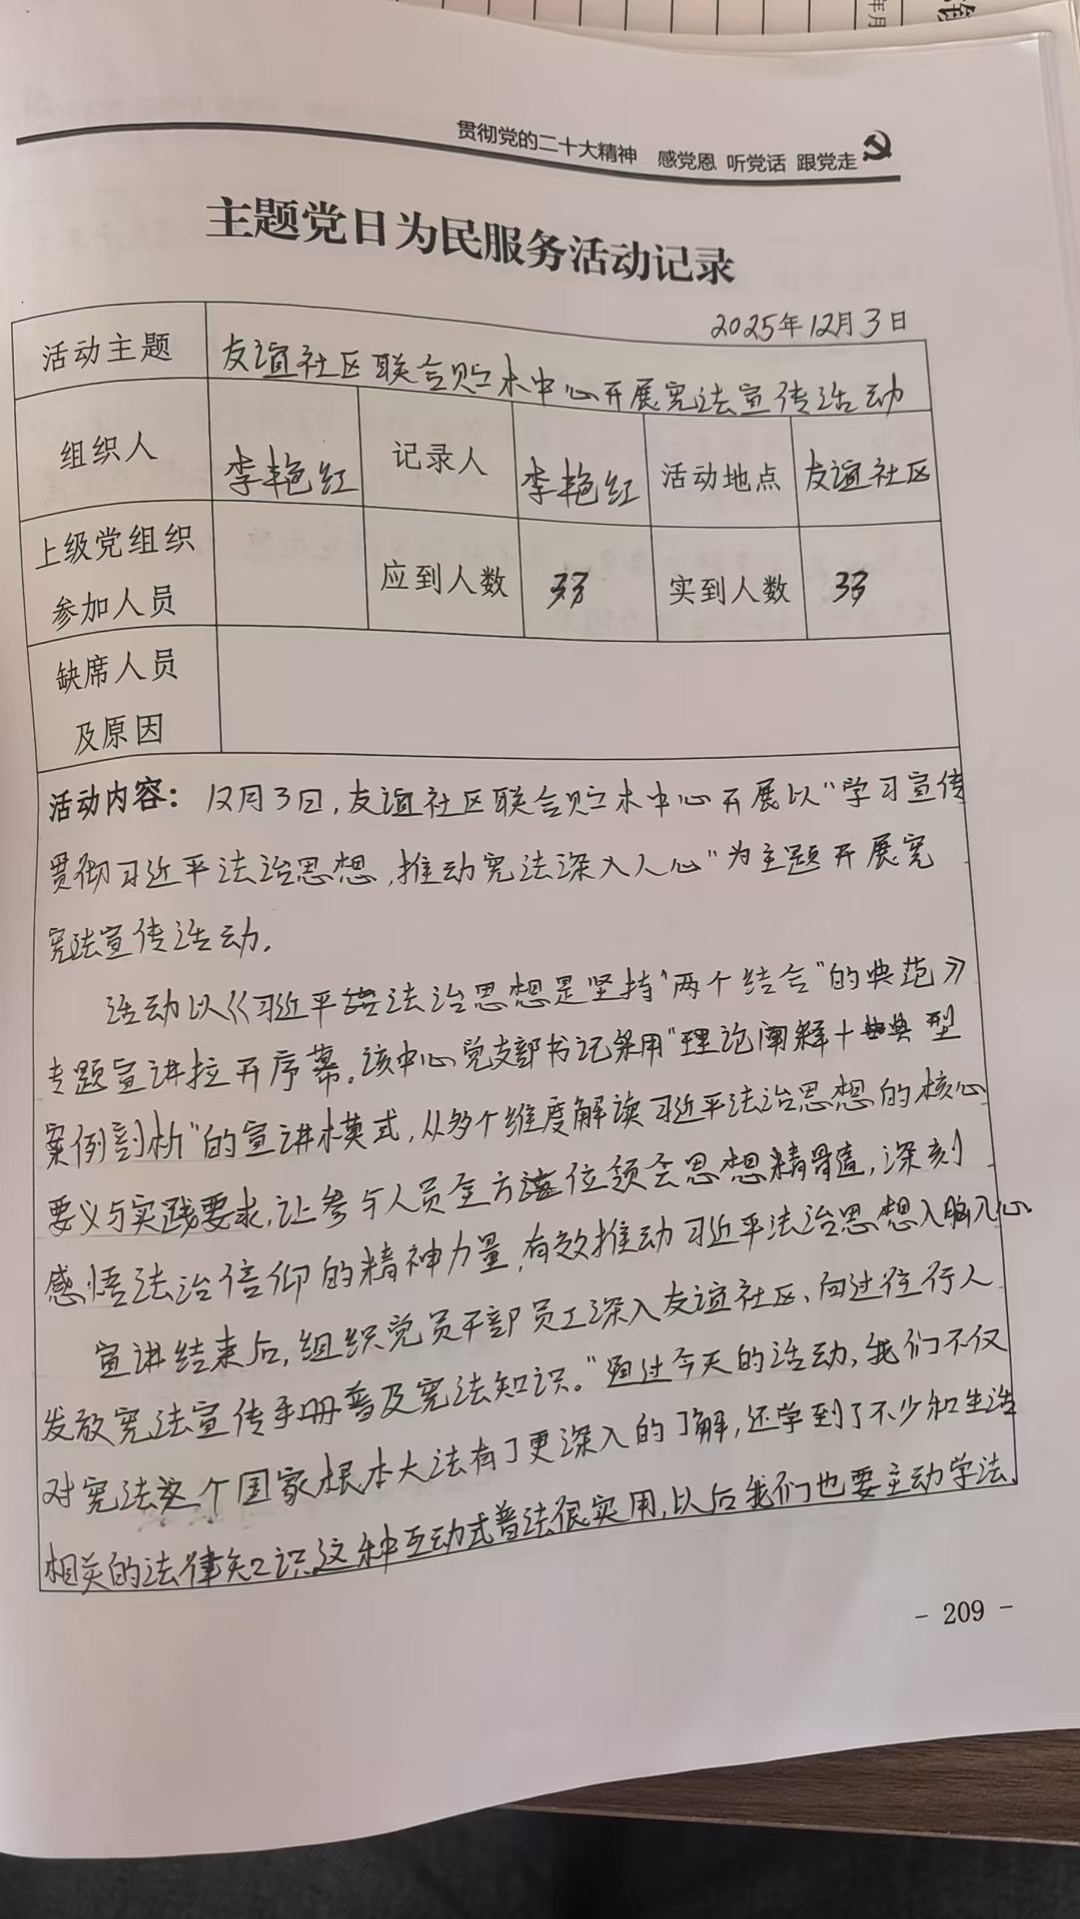 年月
贯彻党的二十大精神 感党恩 听党话 跟党走
主题党日为民服务活动记录
2025年12月3日
活动主题 友谊社区联合贮木中心开展宪法宣传活动
组织人 李艳红 记录人 李艳红 活动地点 友谊社区
上级党组织
参加人员 应到人数 33 实到人数 33
缺席人员
及原因
活动内容：12月3日，友谊社区联合贮木中心开展以“学习宣传
贯彻习近平法治思想，推动宪法深入人心”为主题开展宪
宪法宣传活动。
活动以《习近平法治思想是坚持“两个结合”的典范》
专题宣讲拉开序幕。该中心党支部书记采用“理论阐释＋典型
案例剖析”的宣讲模式，从多个维度解读习近平法治思想的核心
要义与实践要求，让参与人员全方位领会思想精髓，深刻
感悟法治信仰的精神力量，有效推动习近平法治思想入脑入心。
宣讲结束后，组织党员干部员工深入友谊社区、向过往行人
发放宪法宣传手册普及宪法知识。“通过今天的活动，我们不仅
对宪法这个国家根本大法有了更深入的了解，还学到了不少和生活
相关的法律知识，这种互动式普法很实用，以后我们也要主动学法、
- 209 -